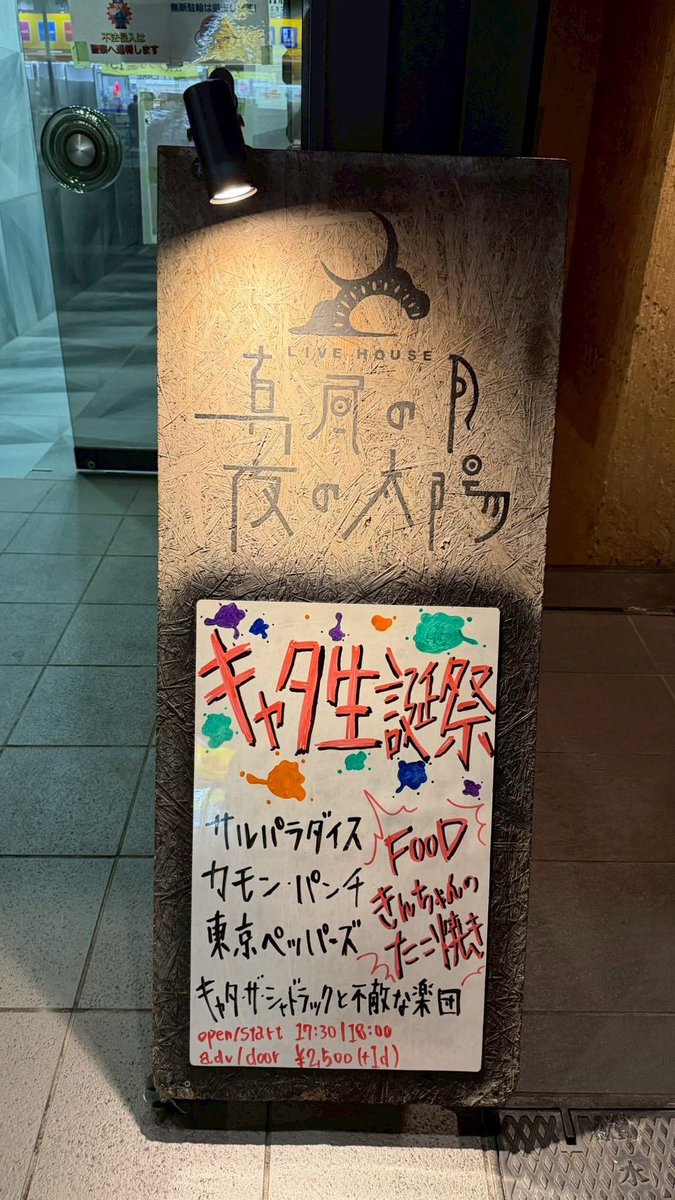 不法侵入は
警察へ通報します
LIVE HOUSE
真風の月
夜の太陽
キャタ生誕祭
サルパラダイス
カモン・パンチ
東京ペッパーズ
キャタ・ザ・シャドラックと不敵な楽団
FOOD
きんちゃんの
たこ焼き
open/start 17:30/18:00
adv/door ¥2,500(+1d)
水